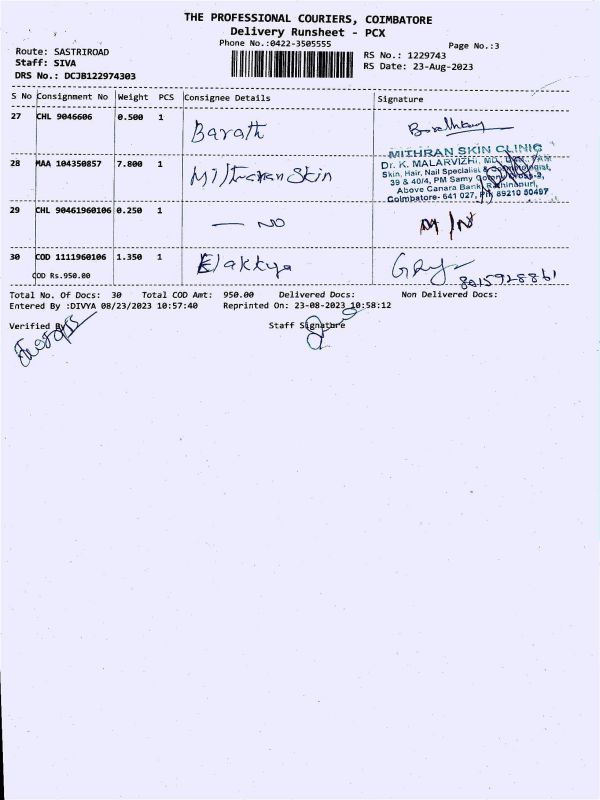 THE PROFESSIONAL COURIERS, COIMBATORE
Delivery Runsheet - PCX
Phone No.:0422-3505555
Page No.:3
Route: SASTRIROAD
Staff: SIVA
DRS No.: DCJB122974303
RS No.: 1229743
RS Date: 23-Aug-2023
S No Consignment No Weight PCS Consignee Details Signature
27 CHL 9046606 0.500 1 Barath
28 MAA 104350857 7.800 1 Mithran Skin
MITHRAN SKIN CLINIC
Dr. K. MALARVIZHI,
Skin, Hair, Nail Specialist & Cosmetologist,
39 & 40/4, PM Samy Colony,
Above Canara Bank, Rathinapuri,
Coimbatore- 641 027, 89210 50497
29 CHL 90461960106 0.250 1 — NO M/N
30 COD 1111960106 1.350 1 Elakkya
COD Rs.950.00
8015928861
Total No. Of Docs: 30 Total COD Amt: 950.00 Delivered Docs: Non Delivered Docs:
Entered By :DIVYA 08/23/2023 10:57:40 Reprinted On: 23-08-2023 10:58:12
Verified By Staff Signature